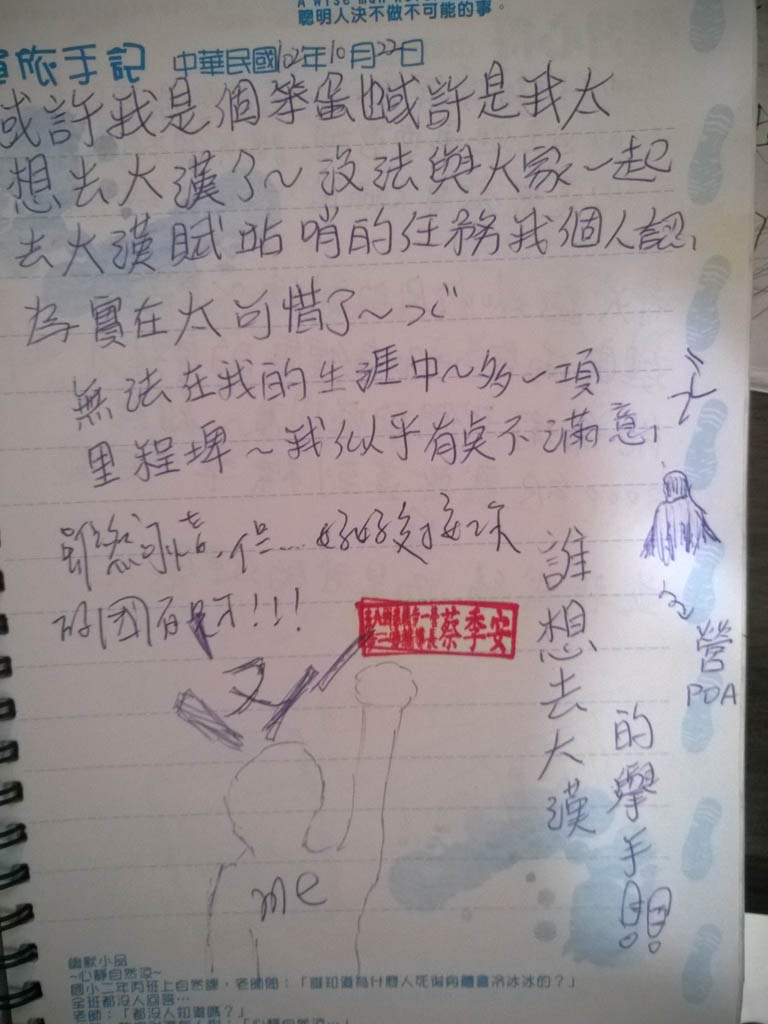 聰明人決不做不可能的事。
旅手記 中華民國102年10月22日
或許我是個笨蛋也或許是我太
想去大漢了~沒法與大家一起
去大漢賦站哨的任務我個人認
為實在太可惜了~
無法在我的生涯中~多一項
里程埤~我似乎有點不滿意
雖然可惜,但... 好好交接
蔡季安
誰想去大漢
的舉手!!!
營
POA
又
me
幽默小品
~心靜自然涼~
國小二年丙班上自然課,老師問:「誰知道為什麼人死後身體會冷冰冰的?」
全班都沒人回答…
老師:「都沒人知道嗎?」